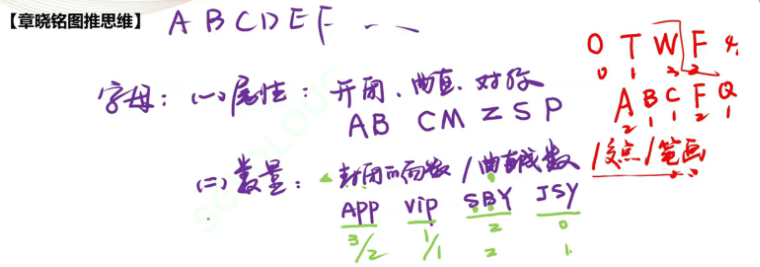 【章晓铭图推思维】 A B C D E F ...
字母：(一)属性：开闭、曲直、对称
AB CM Z S P
(二)数量：封闭面数/曲直线数/交点/笔画
APP Vip SBY JSY
3/2 1/1 2 0
2 1
O T W F
0 1 3 2
A B C F Q
2 1 1 2 1